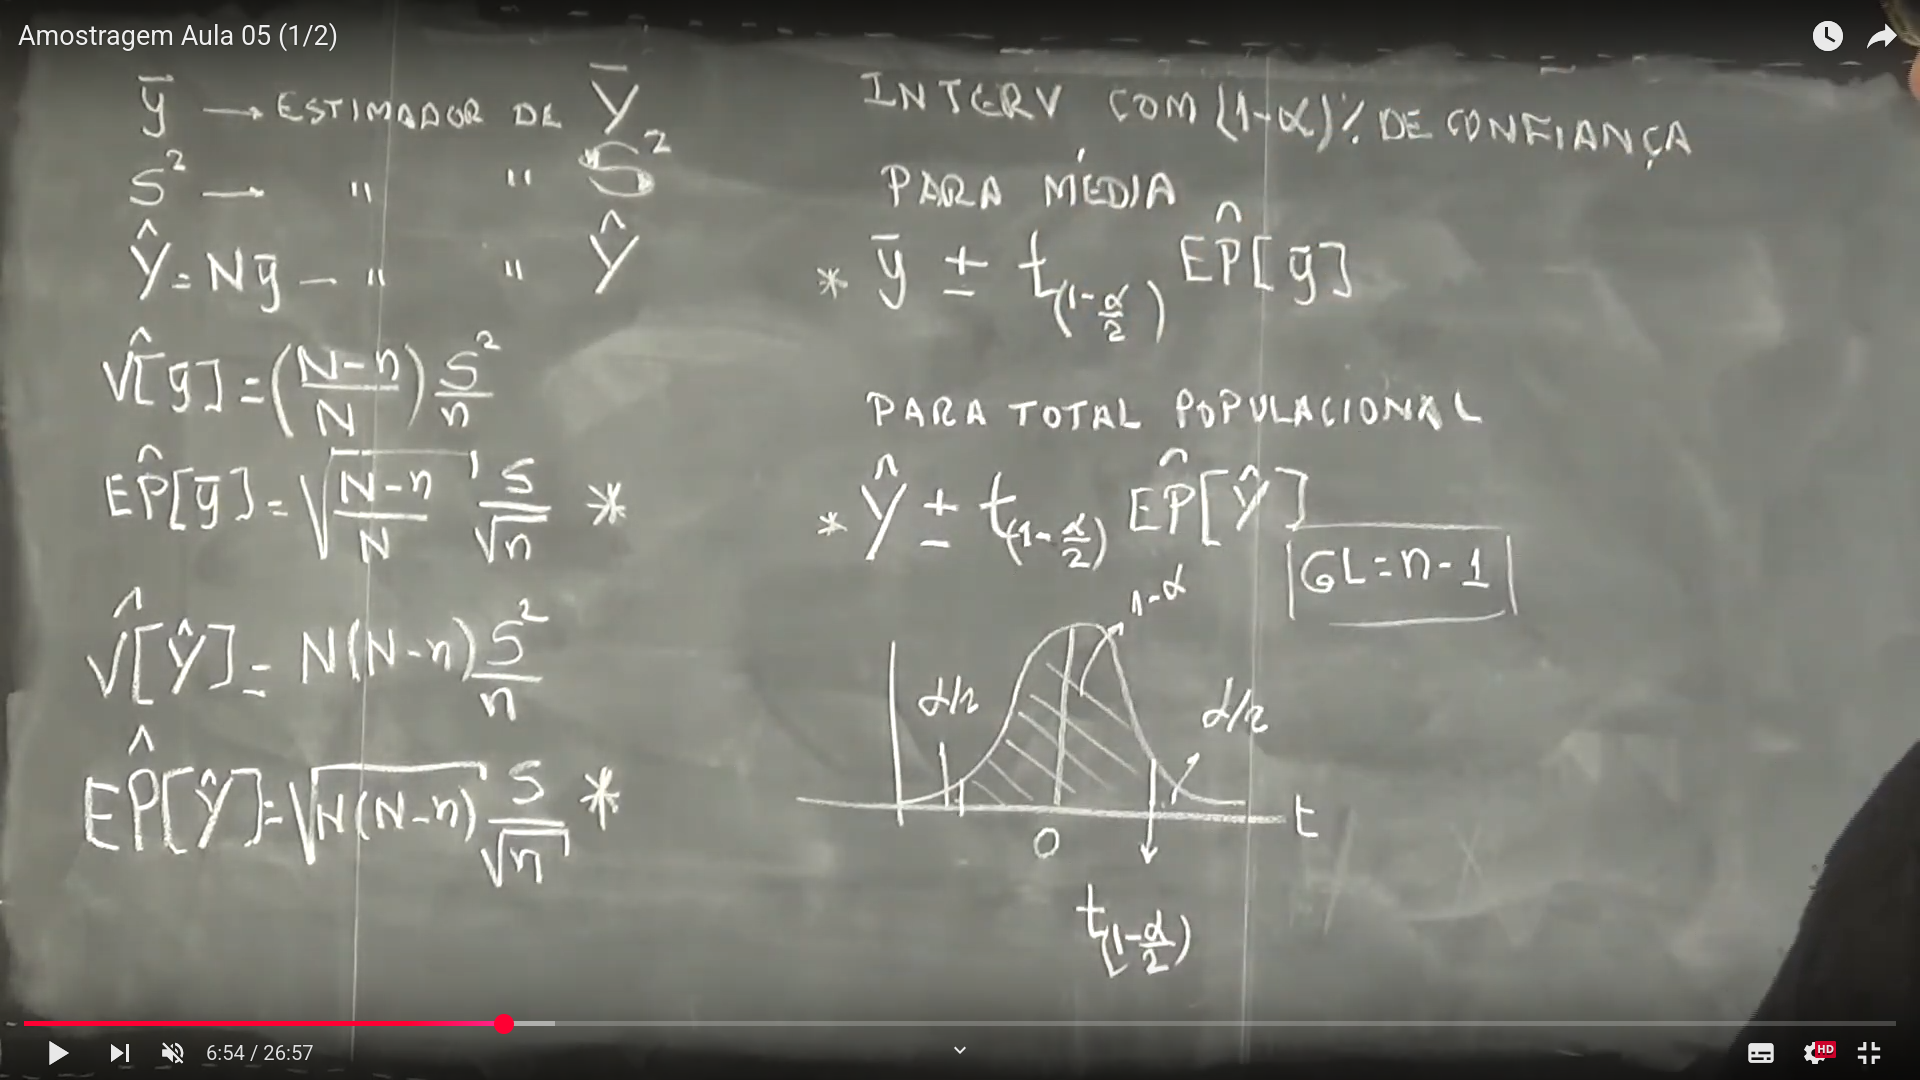 Amostragem Aula 05 (1/2)
ȳ → ESTIMADOR DE Ȳ
s² → " " S²
Ŷ = Nȳ – " " Ŷ
V̂[ȳ] = ((N-n)/N) s²/n
EP̂[ȳ] = √((N-n)/N) s/√n *
V̂[Ŷ] = N(N-n) s²/n
EP̂[Ŷ] = √(N(N-n)) s/√n *
INTERV COM (1-α)% DE CONFIANÇA
PARA MÉDIA
* ȳ ± t(1-α/2) EP̂[ȳ]
PARA TOTAL POPULACIONAL
* Ŷ ± t(1-α/2) EP̂[Ŷ]
GL=n-1
1-α
α/2
α/2
0
t
t(1-α/2)
6:54 / 26:57
HD